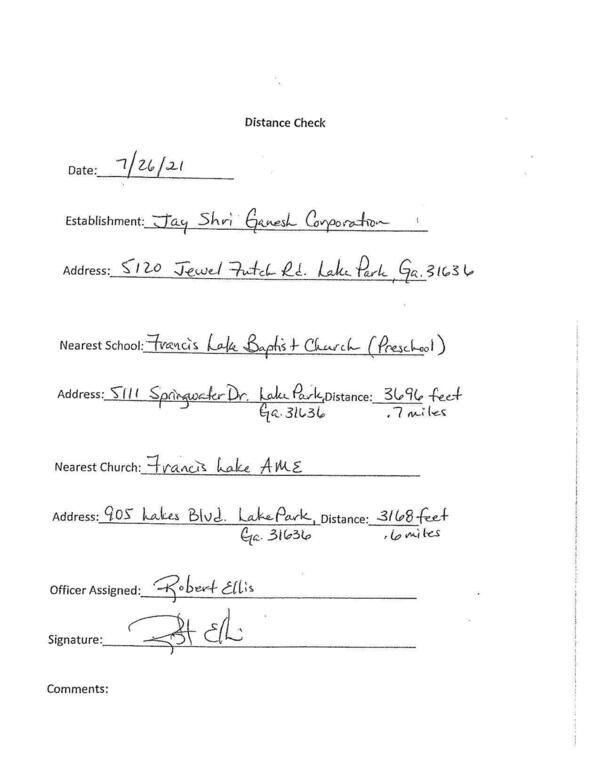 Distance Check
Date: 7/26/21
Establishment: Jay Shri Ganesh Corporation
Address: 5120 Jewel Futch Rd. Lake Park, Ga. 31636
Nearest School: Francis Lake Baptist Church (Preschool)
Address: 5111 Springwater Dr. Lake Park, Distance: 3696 feet
Ga. 31636 .7 miles
Nearest Church: Francis Lake AME
Address: 905 Lakes Blvd. Lake Park, Distance: 3168 feet
Ga. 31636 .6 miles
Officer Assigned: Robert Ellis
Signature: Robt Elli
Comments: